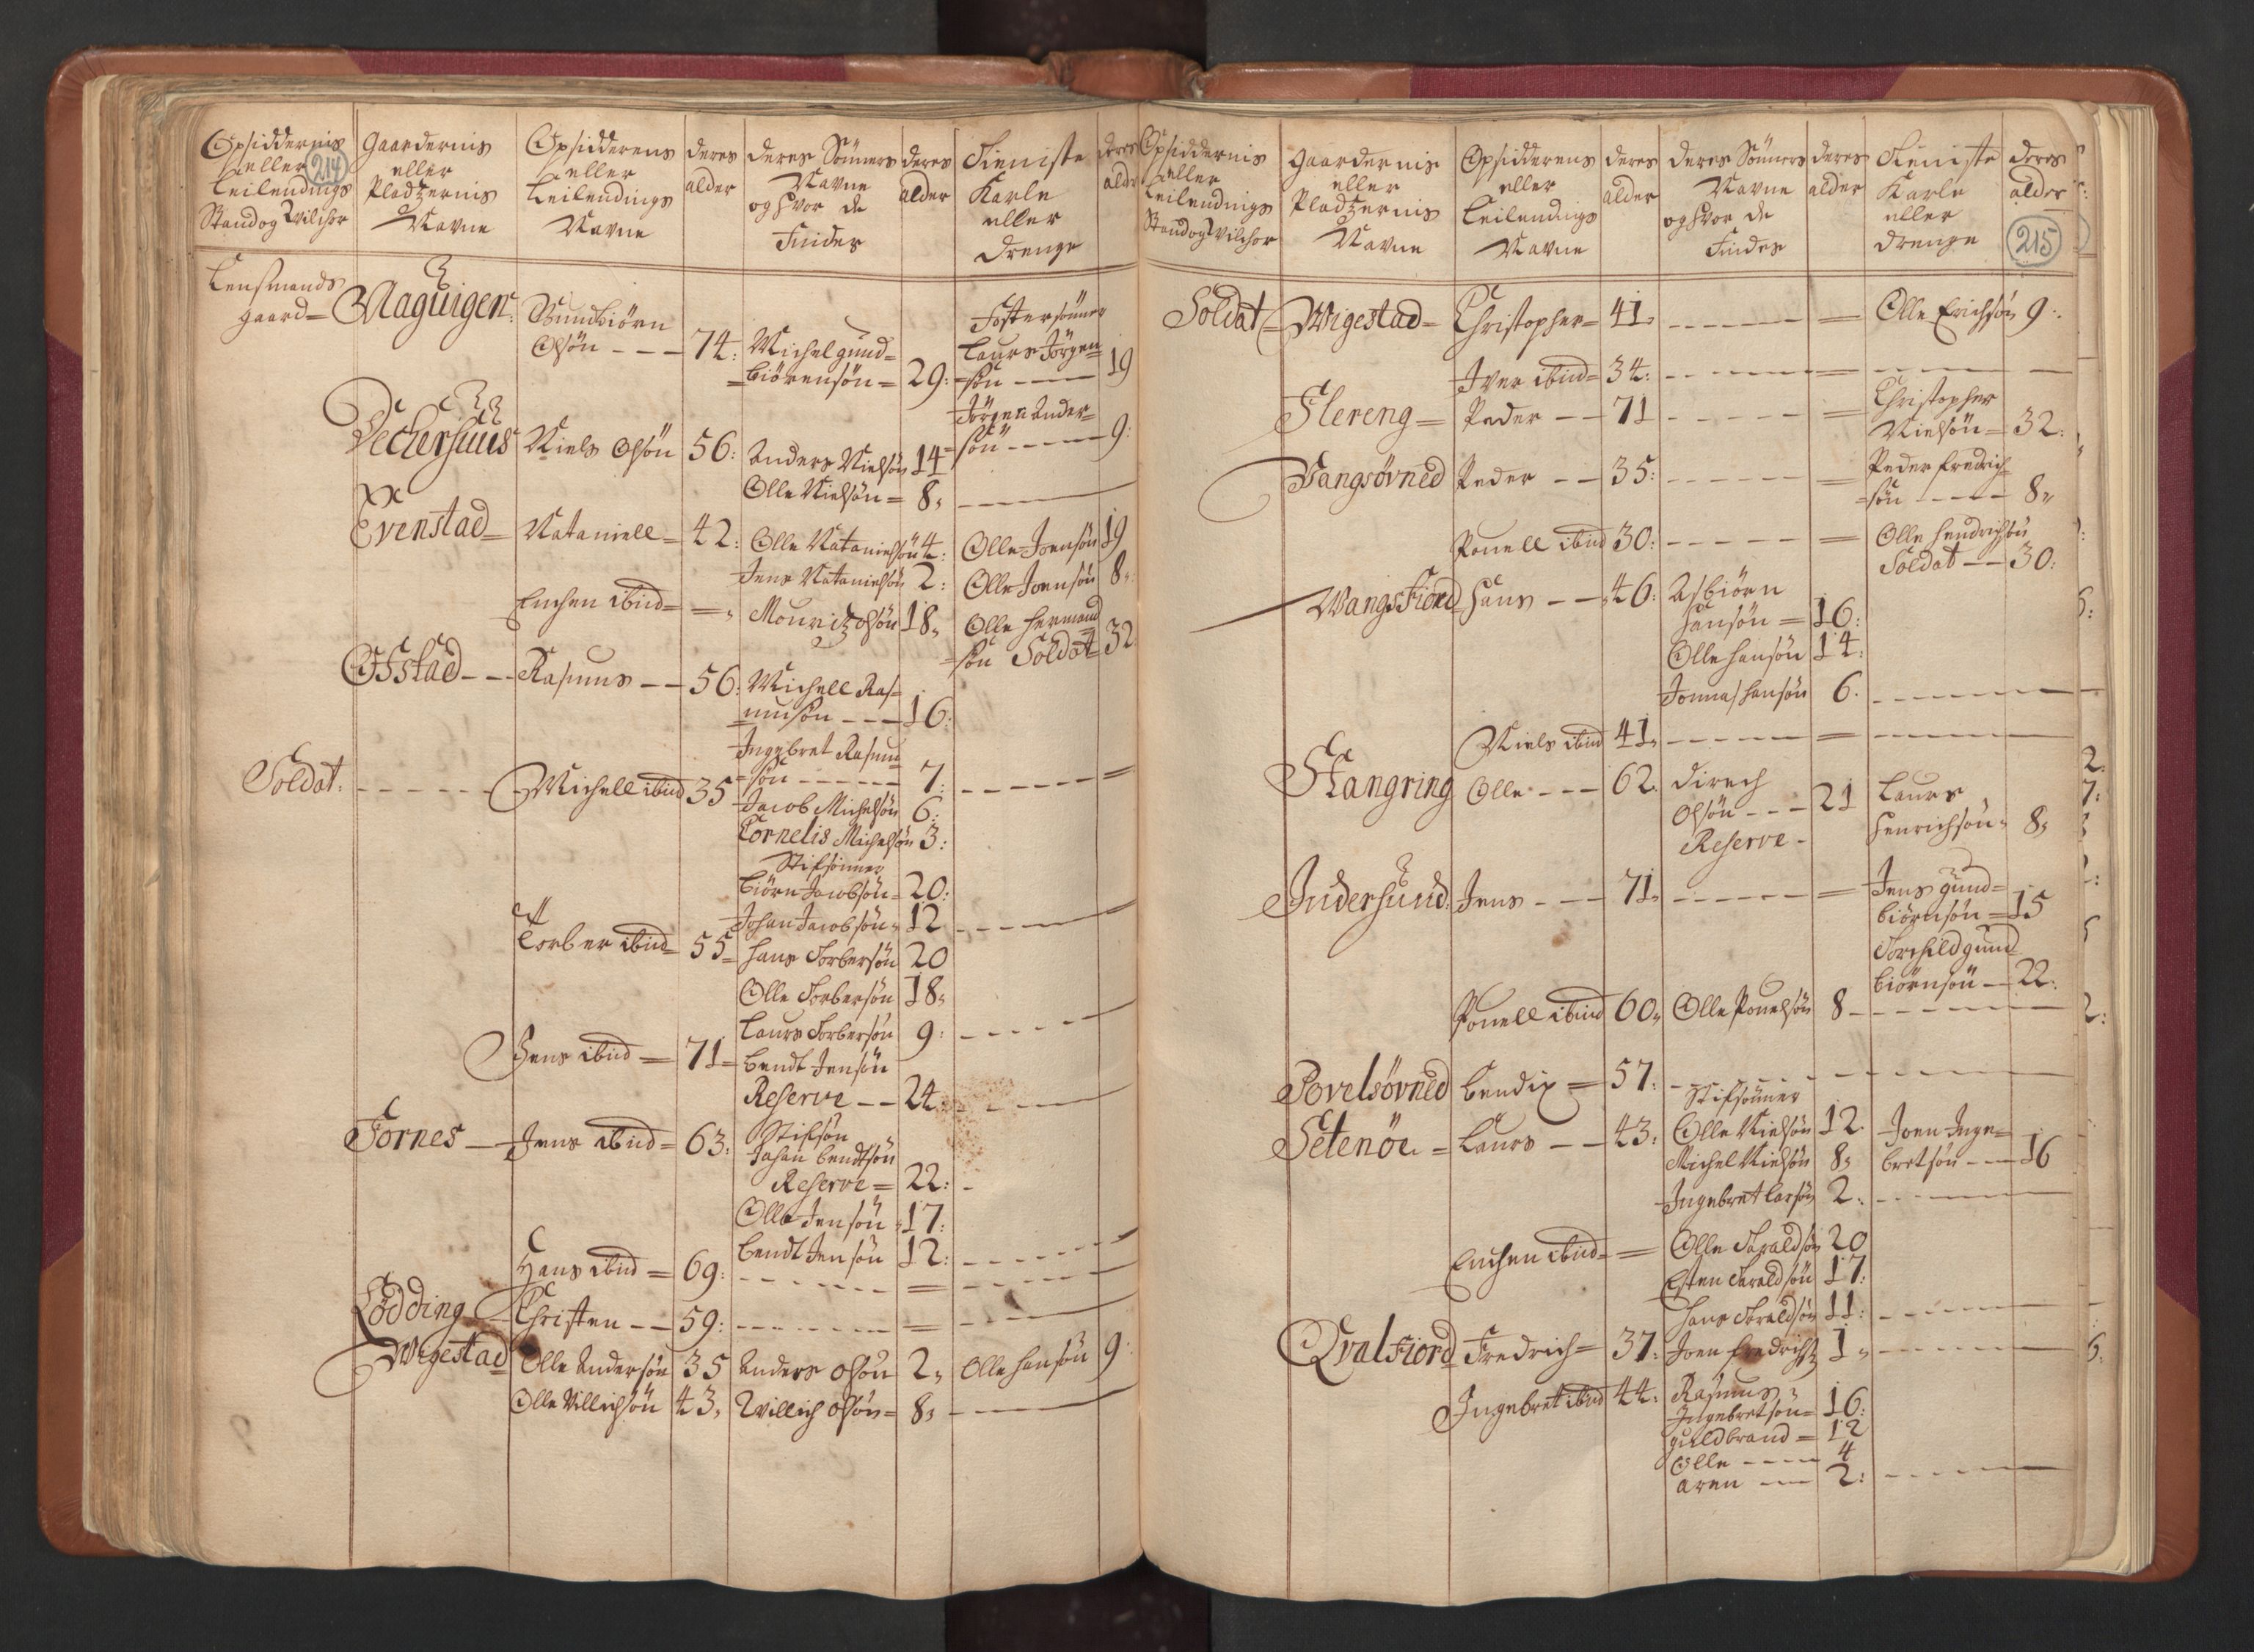 Opsiddernis
eller
Leilendings
Stand og Vilchor
214
Gaardernis
eller
Pladzernis
Navne
Opsidderens
eller
Leilendings
Navne
deres
alder
deres Sønners
Navne
og hvor de
Findes
deres
alder
Tieniste
Karle
eller
drenge
deres
alder
Lensmands
gaard = Maguigen:
Gundbiörn
Olsön - - - 74: Michel gund=
=biörensön = 29:
Fostersönner
Laurs Jörgen=
=sön - - - 19
Vecherhuus Niels Olsön 56: Anders Nielsön 14
Jörgen Ander=
=sön - - - - 9:
Olle Nielsön = 8:
Evenstad = Nataniell = 42: Olle Natanielsön 4: Olle Joensön 19
Jens Natanielsön 2: Olle Joensön 8:
Enchen ibid = = Mouritz Olsön 18: Olle Hermand=
=sön Soldat 32
Ofstad - - - Rasmus - - 56: Michell Ras=
=musön - - - 16:
Ingebret Rasmu=
=sön - - - - - 7:
Soldat: - - - - - Michell ibid 35 Jacob Michelsön 6:
Cornelis Michelsön 3:
Stifsönner
Biörn Jacobsön = 20:
Johan Jacobsön = 12
Torber ibid = 55 = Hans Torbersön 20
Olle Torbersön 18:
Laurs Torbersön 9:
Jens ibid = 71 = Bendt Jensön
Reserve - - 24
Fornes - Jens ibid = 63: Stifsön
Johan Bendtsön
Reserve = 22:
Olle Jensön 17:
Bendt Jensön 12:
Hans ibid = 69:
Lødding Christen - - 59:
Wigestad Olle Andersön 35 Anders Olsön 2: Olle Hansön 9:
Olle Villichsön 43: Willich Olsön = 8:
Opsiddernis
eller
Leilendnigs
Stand og Vilchor
Gaardernis
eller
Pladzernis
Navne
Opsidderens
eller
Leilendnigs
Navne
deres
alder
deres Sönners
Navne
og hvor de
Findes
deres
alder
Tieniste
Karle
eller
drenge
deres
alder
215
Soldat = Wigestad = Christopher = 41: - - - - - = Olle Erichsön 9:
Iver ibid = 34:
Flereng = Peder - - 71 - - - - - = Christopher
Nielsön = 32:
Vangsövned Peder - - 35: - - - - - = Peder Fredrich=
=sön - - - - 8:
Pouell ibid 30: - - - - - = Olle Hendrichsön
Soldat - - 30:
Wangsfiord Hans - - 46: Asbiörn
Hansön = 16:
Olle Hansön 14:
Jonnas Hansön 6.
Niels ibid 41:
Stangring Olle - - - 62. Direch
Olsön - - - 21
Reserve -
Laurs
Henrichsön = 8:
Indersund Jens - - - 71: - - - - - = Jens gund=
biörnsön = 15
Torchild gund=
biörnsön - 22:
Pouell ibid 60: Olle Pouelsön 8
Povelsövned Bendix = 57:
Stifsönner
Setenöe = Laurs - - 43: Olle Nielsön 12. Joen Inge=
Michel Nielsön 8: bretsön - - - 16
Ingebret Larsön 2:
Enchen ibid = = Olle Toraldsön 20
Esten Toraldsön 17:
Hans Toraldsön 11:
Qvalfiord Fredrich = 37: Joen Fredrichs: 1:
Ingebret ibid 44: Rasmus
Ingebretsön = 16:
Guldbrand = 12
Olle - - - - 4
Aren - - - 2: